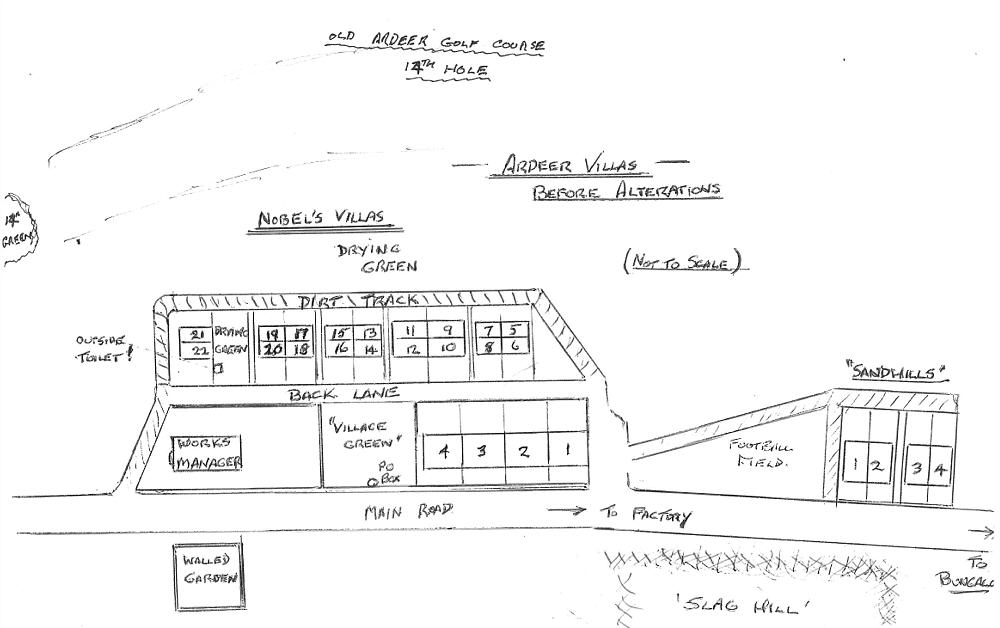 OLD ARDEER GOLF COURSE
14TH HOLE
ARDEER VILLAS
BEFORE ALTERATIONS
14TH
GREEN
NOBEL'S VILLAS
DRYING
GREEN
(NOT TO SCALE)
DIRT TRACK
OUTSIDE
TOILET!
21
22
DRYING
GREEN
19 17
20 18
15 13
16 14
11 9
12 10
7 5
8 6
"SANDHILLS"
BACK LANE
WORKS
MANAGER
"VILLAGE
GREEN"
PO
BOX
4 3 2 1
FOOTBALL
FIELD.
1 2
3 4
MAIN ROAD
TO FACTORY
WALLED
GARDEN
'SLAG HILL'
TO